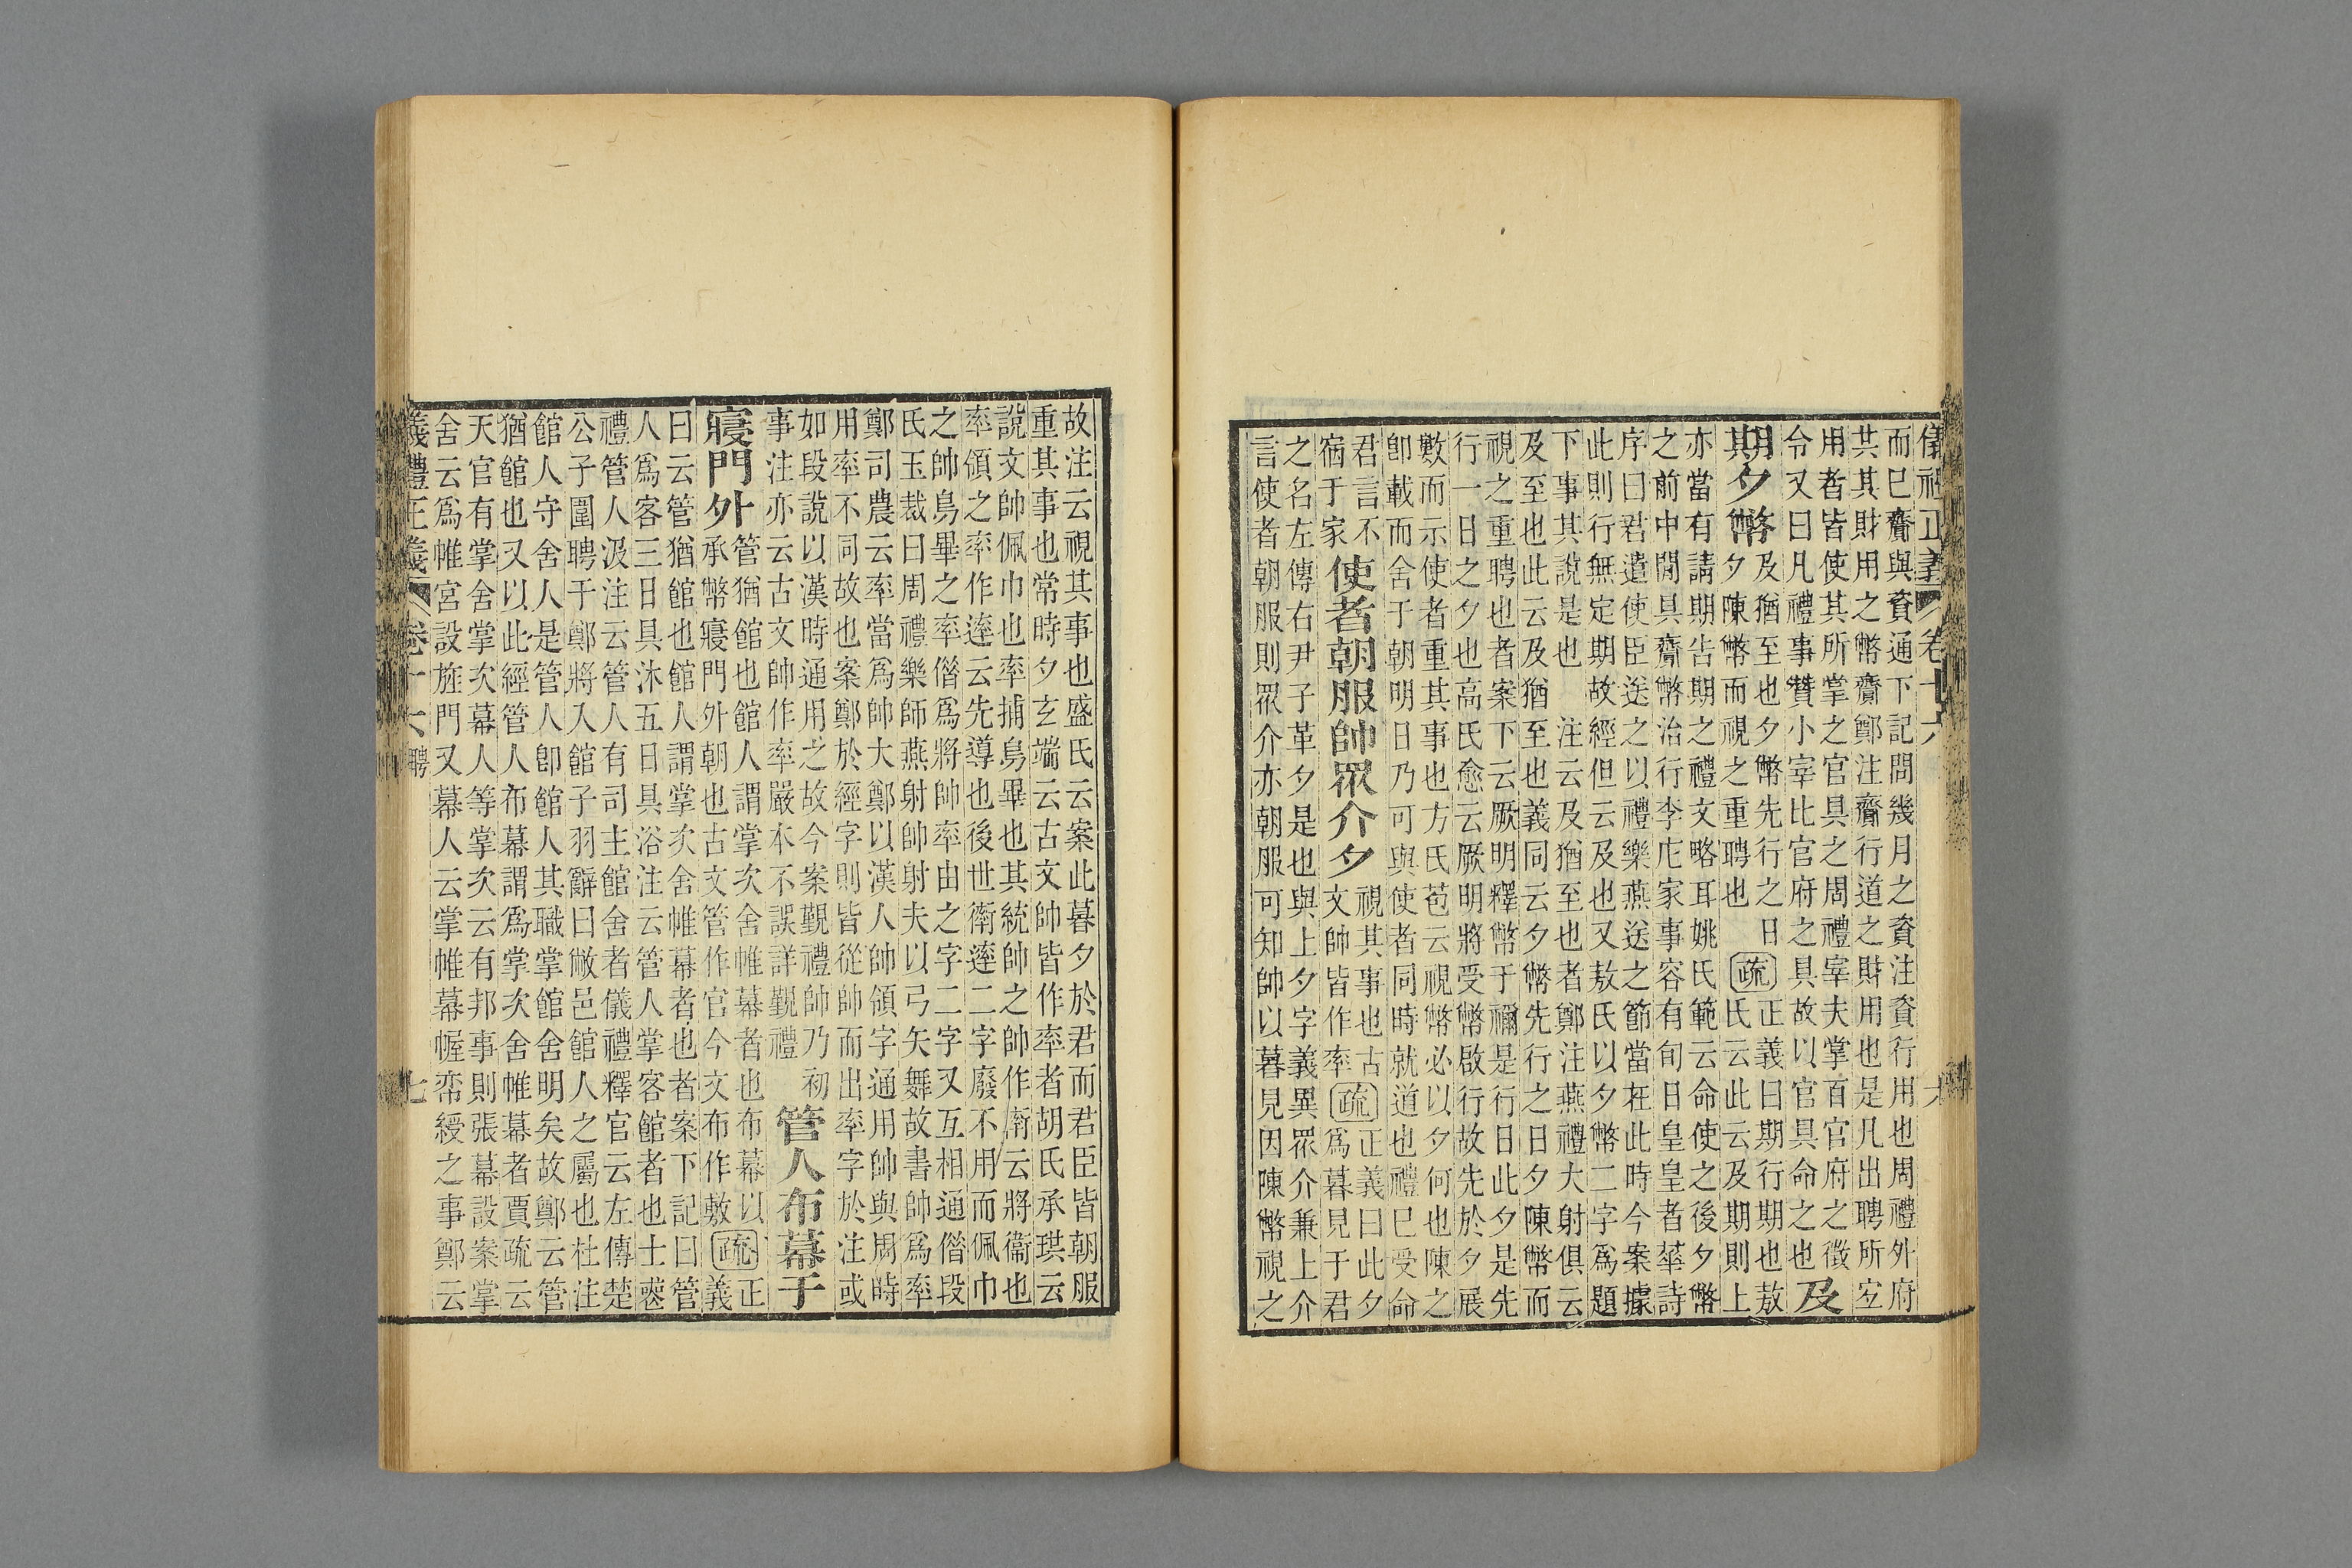 儀禮正義 卷十六 六
而已齎與資通下記問幾月之資注資行用也周禮外府
共其財用之幣齎鄭注齎行道之財用也是凡出聘所宐
用者皆使其所掌之官具之周禮宰夫掌百官府之徵
令又曰凡禮事贊小宰比官府之具故以官具命之也及
期夕幣
及猶至也夕幣先行之日
夕陳幣而視之重聘也
疏
正義曰期行期也敖
氏云此云及期則上
亦當有請期告期之禮文略耳姚氏範云命使之後夕幣
之前中閒具齎幣治行李庀家事容有旬日皇皇者華詩
序曰君遣使臣送之以禮樂燕送之節當在此時今案據
此則行無定期故經但云及也又敖氏以夕幣二字爲題
下事其說是也 注云及猶至也者鄭注燕禮大射俱云
及至也此云及猶至也義同云夕幣先行之日夕陳幣而
視之重聘也者案下云厥明釋幣于禰是行日此夕是先
行一日之夕也高氏愈云厥明將受幣啟行故先於夕展
數而示使者重其事也方氏苞云視幣必以夕何也陳之
卽載而舍于朝明日乃可與使者同時就道也禮已受命
君言不
宿于家
使者朝服帥眾介夕
視其事也古
文帥皆作率
疏
正義曰此夕
爲暮見于君
之名左傳右尹子革夕是也與上夕字義異眾介兼上介
言使者朝服則眾介亦朝服可知帥以暮見因陳幣視之
故注云視其事也盛氏云案此暮夕於君而君臣皆朝服
重其事也常時夕玄端云古文帥皆作率者胡氏承珙云
說文帥佩巾也率捕鳥畢也其統帥之帥作云將衞也
率領之率作云先導也後世二字廢不用而佩巾
之帥鳥畢之率偕爲將帥率由之字二字又互相通偕段
氏玉裁曰周禮樂師燕射帥射夫以弓矢舞故書帥爲率
鄭司農云率當爲帥大鄭以漢人帥領字通用帥與周時
用率不同故也案鄭於經字則皆從帥而出率字於注或
如段說以漢時通用之故今案覲禮帥乃初
事注亦云古文帥作率嚴本不誤詳覲禮
管人布幕于
寢門外
管猶館也館人謂掌次舍帷幕者也布幕以
承幣寢門外朝也古文管作官今文布作敷
疏
正
義
曰云管猶館也館人謂掌次舍帷幕者也者案下記曰管
人爲客三日具沐五日具浴注云管人掌客館者也士喪
禮管人汲注云管人有司主館舍者儀禮釋官云左傳楚
公子圍聘于鄭將入館子羽辭曰敝邑館人之屬也杜注
館人守舍人是管人卽館人其職掌館舍明矣故鄭云管
猶館也又以此經管人布幕謂爲掌次舍帷幕者賈疏云
天官有掌舍掌次幕人等掌次云有邦事則張幕設案掌
舍云爲帷宮設旌門又幕人云掌帷幕幄帟綬之事鄭云
義禮正義 卷十六 聘 七